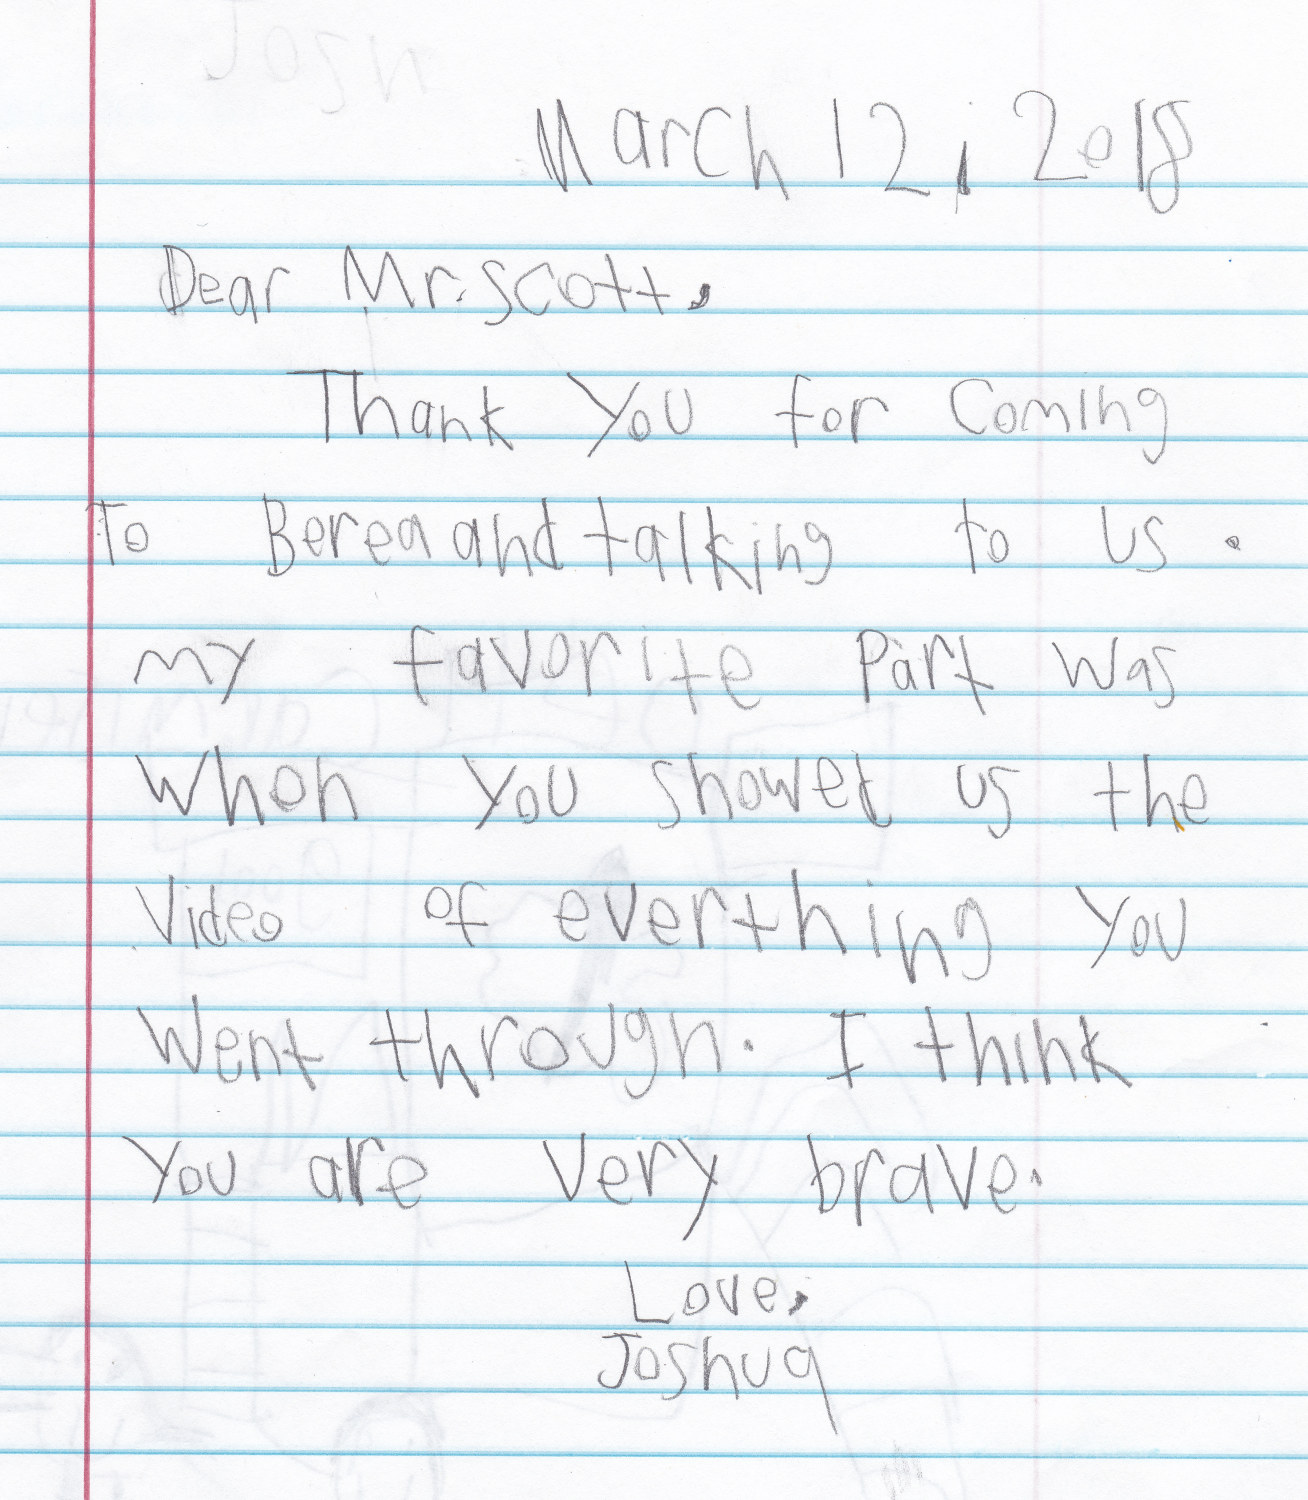 March 12, 2018
Dear Mr. Scott,
Thank You for Coming
To Berea and talking to us.
my favorite Part was
When you showet us the
Video of everthing You
Went through. I think
You are Very brave.
Love,
Joshua